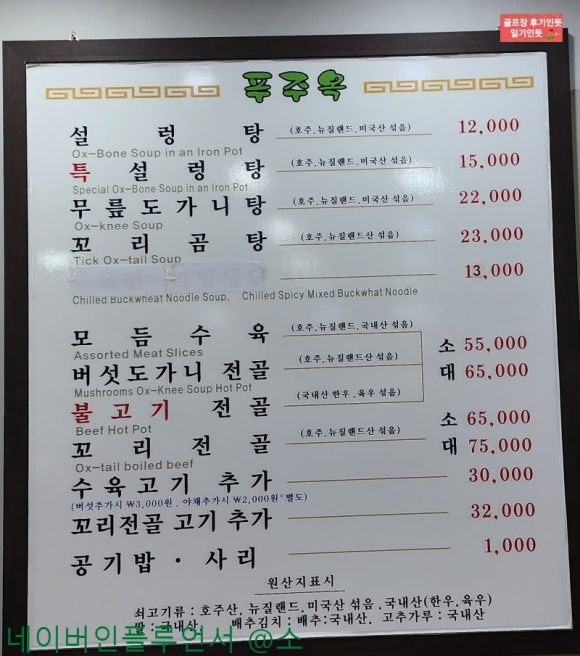 골프장 후기인듯
일기인듯
푸주옥
설렁탕 (호주,뉴질랜드,미국산 섞음) 12,000
Ox-Bone Soup in an Iron Pot
특 설렁탕 (호주,뉴질랜드,미국산 섞음) 15,000
Special Ox-Bone Soup in an Iron Pot
무릎도가니탕 (호주,뉴질랜드,미국산 섞음) 22,000
Ox-knee Soup
꼬리곰탕 (호주,뉴질랜드산 섞음) 23,000
Tick Ox-tail Soup
13,000
Chilled Buckwheat Noodle Soup, Chilled Spicy Mixed Buckwhat Noodle
모듬수육 (호주,뉴질랜드,국내산 섞음)
Assorted Meat Slices
소 55,000
버섯도가니 전골 (호주,뉴질랜드산 섞음) 대 65,000
Mushrooms Ox-Knee Soup Hot Pot
불고기 전골 (국내산 한우,육우 섞음)
Beef Hot Pot
소 65,000
꼬리전골 (호주,뉴질랜드산 섞음) 대 75,000
Ox-tail boiled beef
수육고기 추가 30,000
(버섯추가시 ₩3,000원, 야채추가시 ₩2,000원 별도)
꼬리전골 고기 추가 32,000
공기밥 · 사리 1,000
원산지표시
쇠고기류 : 호주산, 뉴질랜드,미국산 섞음, 국내산(한우,육우)
쌀 : 국내산 배추김치 : 배추:국내산, 고추가루 : 국내산
네이버인플루언서 @소